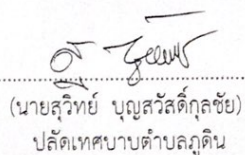 (นายสุวิทย์ บุญสวัสดิ์กุลชัย)
ปลัดเทศบาบตำบลภูดิน